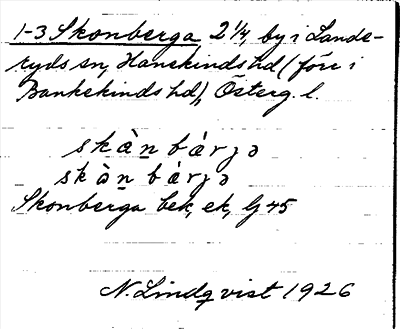 1-3 Skonberga 2 1/4, by i Lande-
ryds sn, Hanekinds hd (förr i
Bankekinds hd), Österg. l.
skàn bárjə
skàn bárjə
Skonberga bek, ek, Gj 45
N. Lindqvist 1926